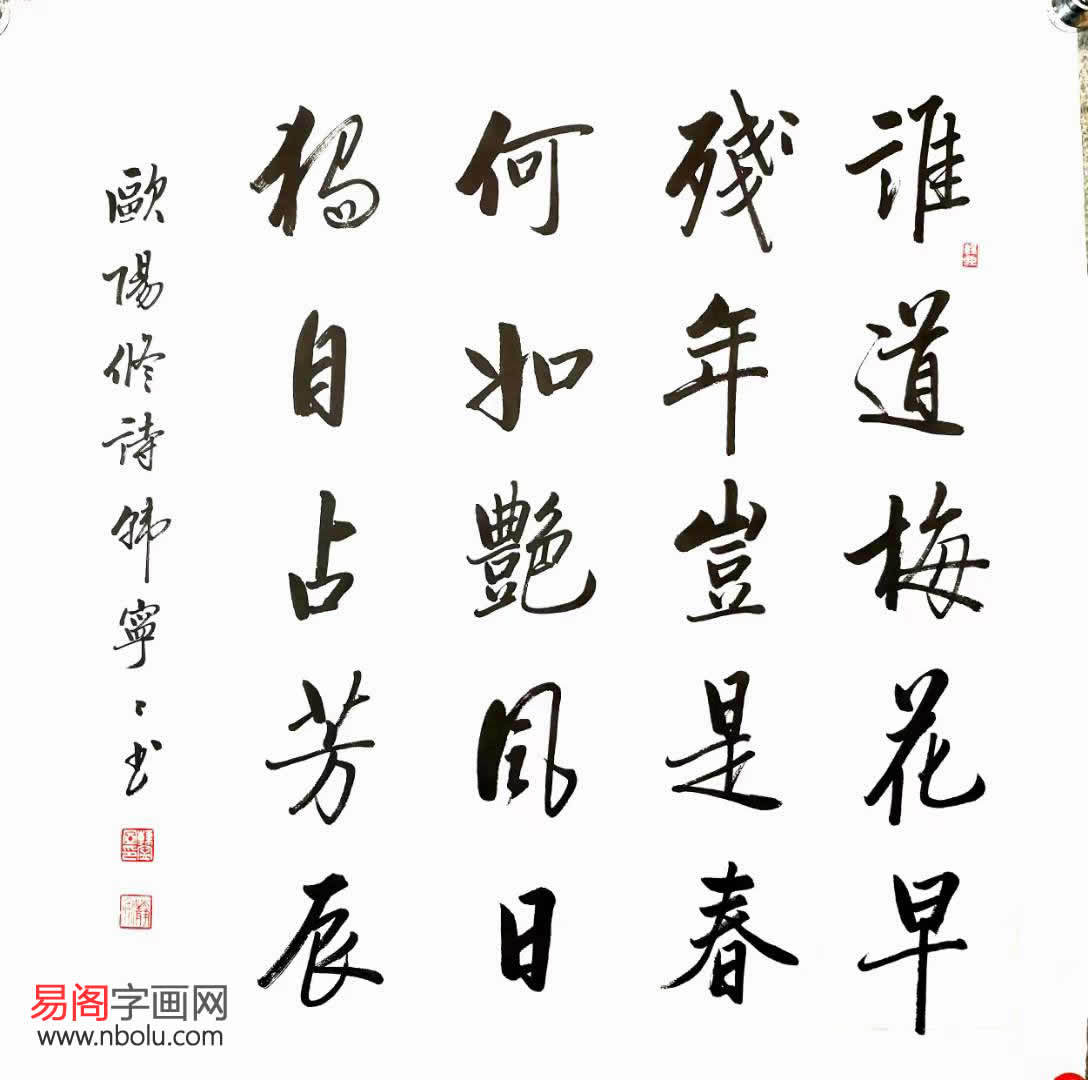 誰道梅花早
殘年豈是春
何如艷風日
獨自占芳辰
歐陽修詩韩寧〻书
易阁字画网
www.nbolu.com